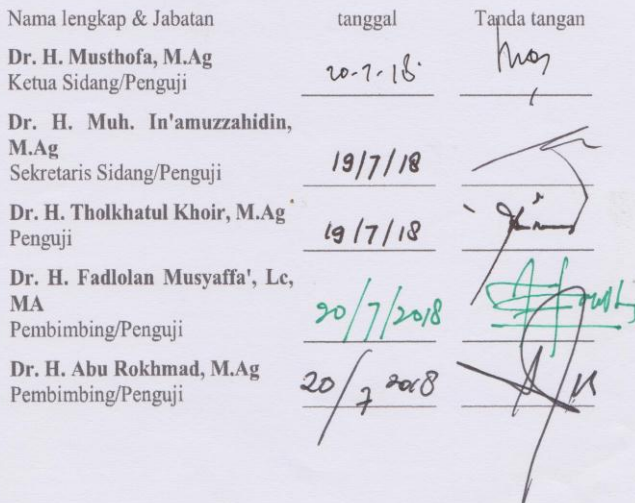 Nama lengkap & Jabatan tanggal Tanda tangan
Dr. H. Musthofa, M.Ag
Ketua Sidang/Penguji 20-7-18
Dr. H. Muh. In'amuzzahidin,
M.Ag
Sekretaris Sidang/Penguji 19/7/18
Dr. H. Tholkhatul Khoir, M.Ag
Penguji 19/7/18
Dr. H. Fadlolan Musyaffa', Lc,
MA
Pembimbing/Penguji 20/7/2018
Dr. H. Abu Rokhmad, M.Ag
Pembimbing/Penguji 20/7 2018